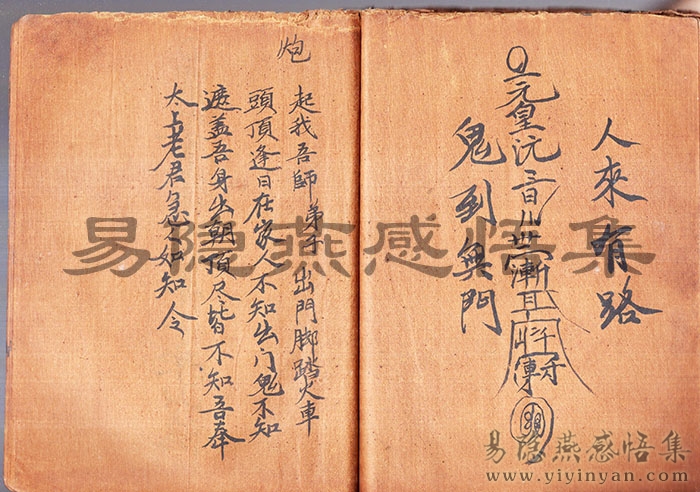 人來有路
鬼到無門
炮
起我吾師弟子出門脚踏火車
頭頂逢日在家人不知出门鬼不知
遮盖吾身出朝頂尽皆不知吾奉
太上老君急如知令
易隐燕感悟集
易隐燕感悟集
www.yiyinyan.com